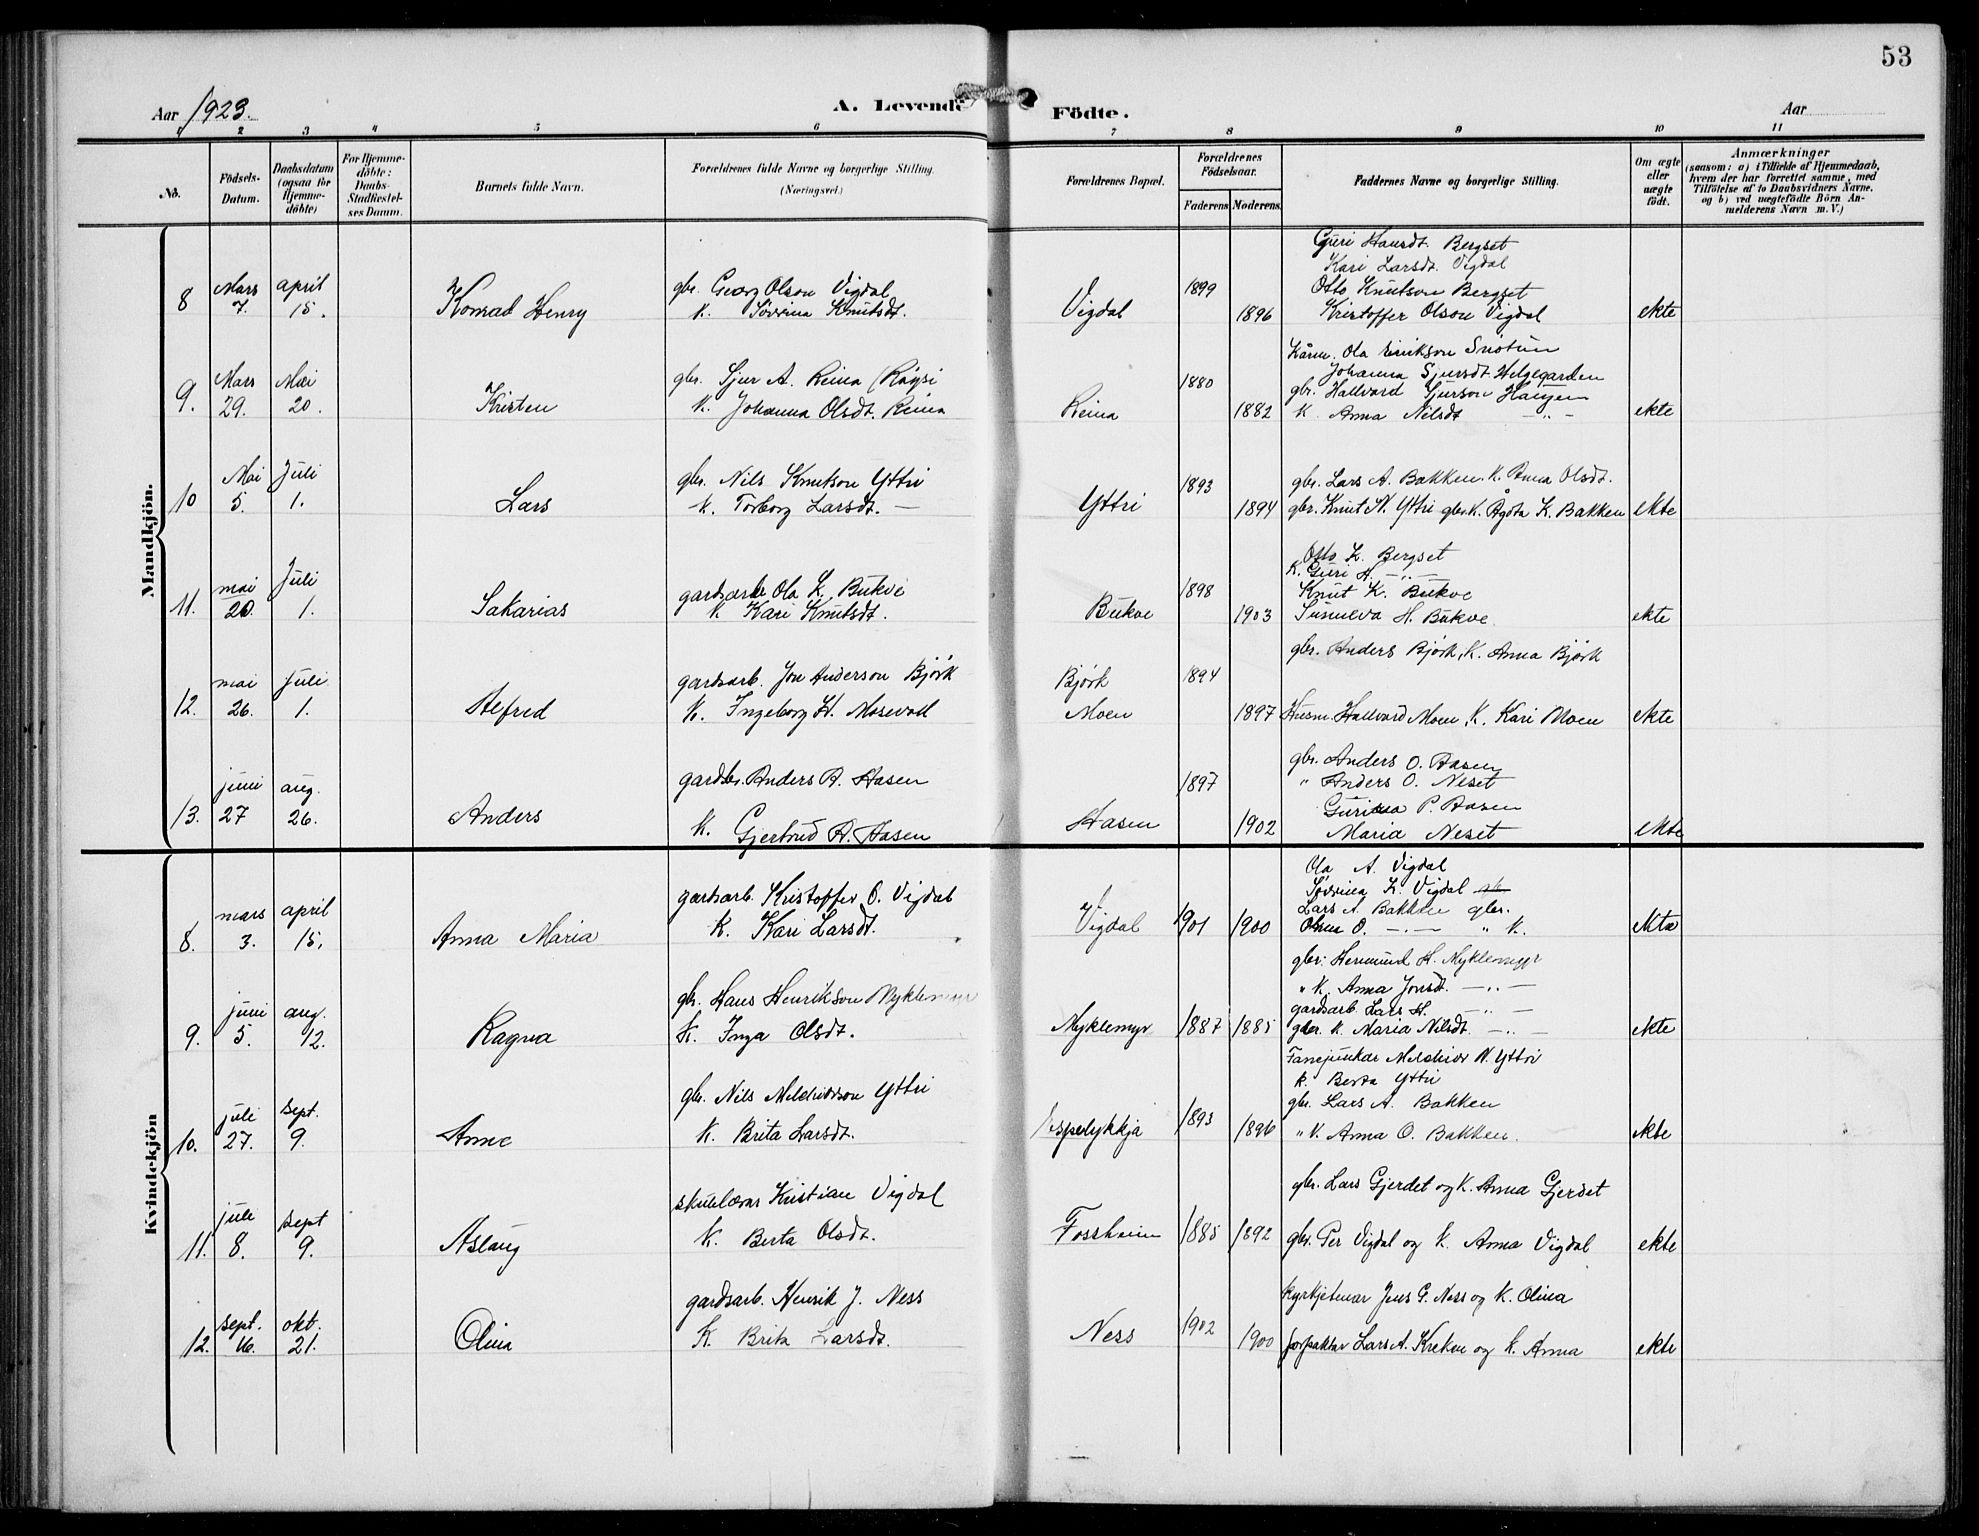 53
Aar 1923.
A. Levende Födte.
Aar
1 2 3 4 5 6 7 8 9 10 11
No.
Födsels-Datum.
Daabsdatum (ogsaa for Hjemme-döbte)
For Hjemme-döbte: Daabs-Stadfæstel-ses Datum.
Barnets fulde Navn.
Forældrenes fulde Navne og borgerlige Stilling. (Næringsvei.)
Forældrenes Bopæl.
Forældrenes Födselsaar.
Faderens Moderens.
Faddernes Navne og borgerlige Stilling.
Om ægte eller uægte födt.
Anmærkninger
(saasom: a) i Tilfælde af Hjemmedaab,
hvem der har forrettet samme, med
Tilföielse af to Daabsvidners Navne,
og b) ved uægtefödte Börn An-
melderens Navn m. V.)
Mandkjön.
8 Mars 7. april 15. Konrad Henry
gbr. Georg Olson Vigdal
K. Sövrina Knutsdt.
Vigdal 1899 1896
Guri Hansdt. Bergset
Kari Larsdt. Vigdal
Otto Knutson Bergset
Kristoffer Olson Vigdal
ekte
9. Mars 29. Mai 20. Kristen
gbr. Sjur A. Reina (Röysi
K. Johanna Olsdt. Reina
Reina 1880 1882
Ola Eirikson
Johanna Sjursdt. Helgegarden
gbr. Hallvard Sjurson Haugen
K. Anna Nilsdt — „ —
ekte
10 Mai 5. Juli 1. Lars
gbr. Nils Knutson Yttri
K. Torborg Larsdt. —
Yttri 1893 1894
gbr. Lars A. Bakken. K. Anna Olsdt.
gbr. Knut N. Yttri gbr.K. Ågota K. Bakken
ekte
11. mai 20. Juli 1. Sakarias
gardsarb Ola L. Bukve
K. Kari Knutsdt.
Bukve 1898 1903
Otto K. Bergset
K. Guri H. — „ —
Knut K. Bukve
Sunneva H. Bukve
ekte
12. mai 26. juli 1. Alfred
gardsarb. Jon Anderson Björk
K. Ingeborg H. Mosevoll
Björk Moen 1894 1897
gbr. Anders Björk, K. Anna Björk
Husm. Hallvard Moen, K. Kari Moen
ekte
13. juni 27 aug. 26. Anders
gardbr. Anders A. Hasen
K. Gjertrud A. Hasen
Hasen 1897 1902
gbr. Anders O. Hasen
„ Anders O. Neset
P. Hasen
Maria Neset
ekte
Kvindekjön
8. mars 3. april 15. Anna Maria
gardsarb. Kristoffer O. Vigdal
K. Kari Larsdt.
Vigdal 1901 1900
Ola A. Vigdal
Sövrina K. Vigdal
Lars A. Bakken gbr.
O. — „ — „ K.
ekte
9. juni 5. aug. 12. Ragna
gbr. Hans Henrikson Myklemyr
K. Inga Olsdt.
Myklemyr 1887 1885
gbr. Hermund H. Myklemyr
„ K. Anna Jonsdt. — „ —
gardsarb. Lars H. — „ —
gbr. K. Maria Nilsdt. — „ —
ekte
10. juli 27. sept. 9. Anne
gbr. Nils Melchiorson Yttri
K. Brita Larsdt.
Espelykkja 1893 1896
Fanejunkar Melchior N. Yttri
K. Berta Yttri
gbr. Lars A. Bakken
„ K. Anna O. Bakken.
ekte
11. juli 8. sept 9. Aslaug
skulelærar Kristian Vigdal
K. Berta Olsdt.
Fossheim 1885 1892
gbr. Lars Gjerdet og K. Anna Gjerdet
gbr. Per Vigdal og K. Anna Vigdal
ekte
12. sept. 16. okt. 21. Olina
gardsarb. Henrik J. Ness
K Brita Larsdt.
Ness 1902 1900
kyrkjetenar Jens G. Ness og K. Olina
forpaktar Lars A. Krekve og K. Anna
ekte